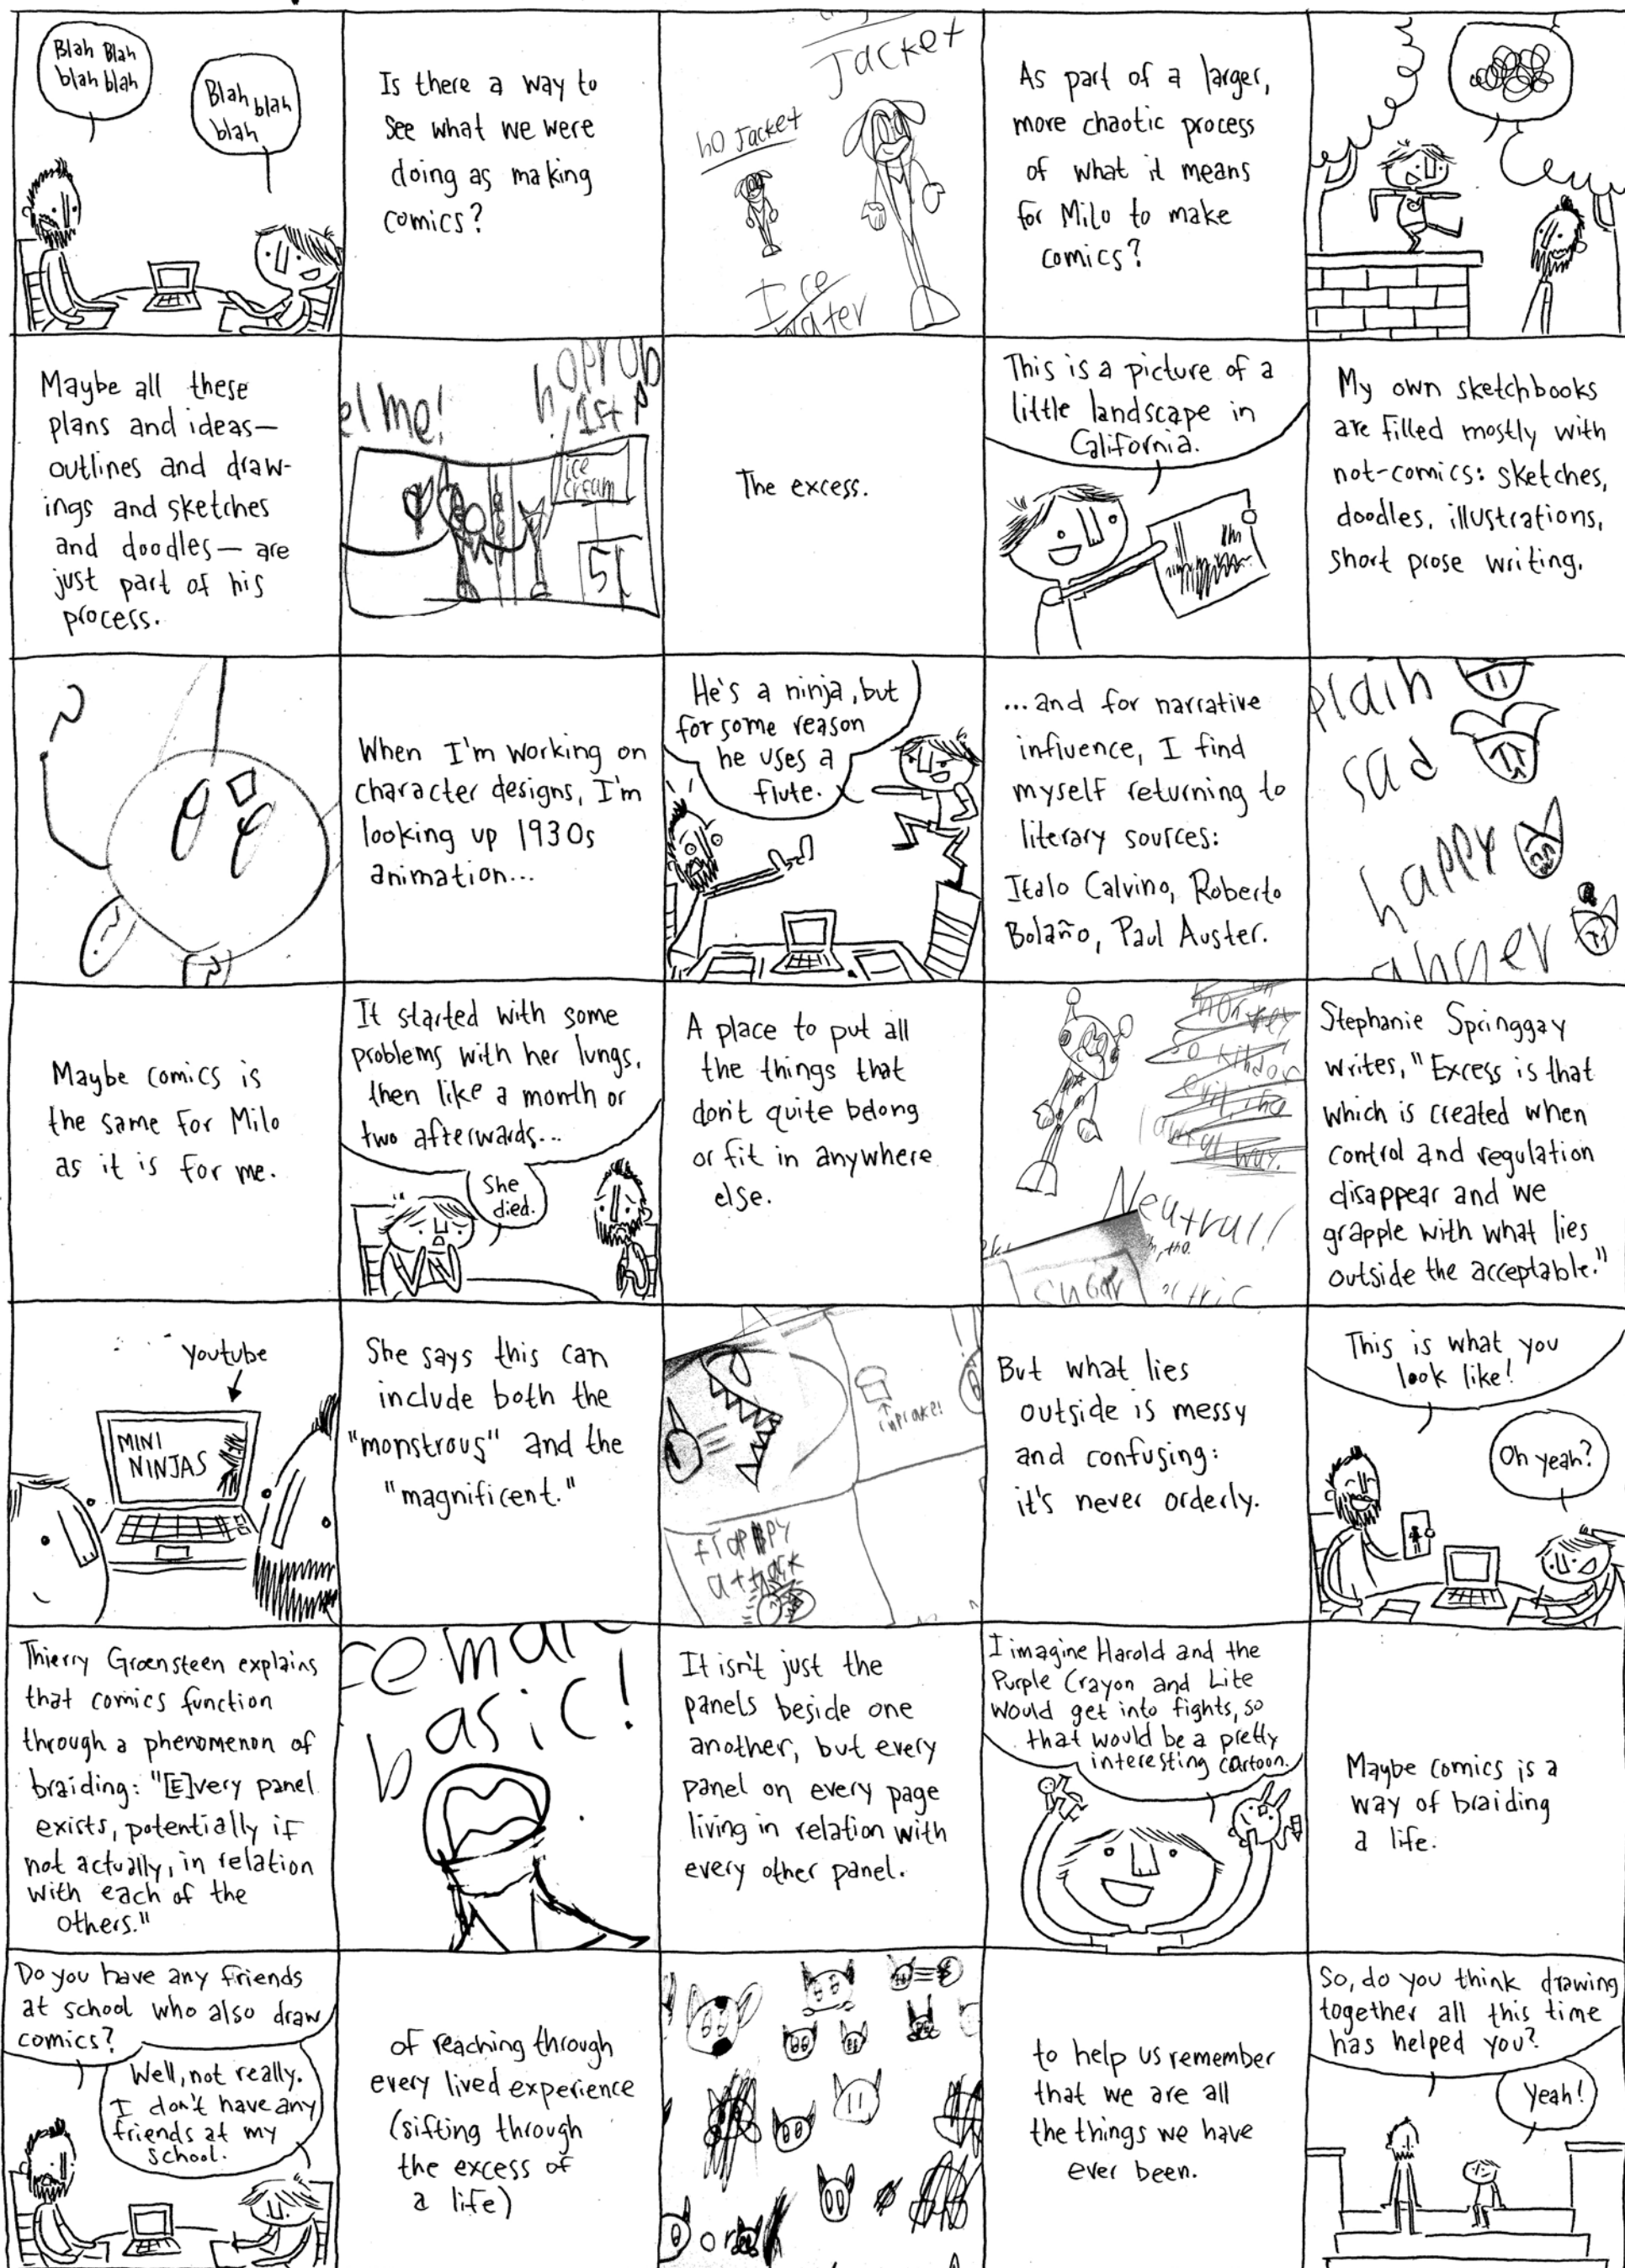 Blah Blah
blah blah
Blah blah
blah
Is there a way to
see what we were
doing as making
comics?
Jacket
no Jacket
Ice
water
As part of a larger,
more chaotic process
of what it means
for Milo to make
comics?
Maybe all these
plans and ideas—
outlines and draw-
ings and sketches
and doodles— are
just part of his
process.
el me!
1st
ice
cream
The excess.
This is a picture of a
little landscape in
California.
My own sketchbooks
are filled mostly with
not-comics: sketches,
doodles, illustrations,
short prose writing.
When I'm working on
character designs, I'm
looking up 1930s
animation...
He's a ninja, but
for some reason
he uses a
flute.
...and for narrative
influence, I find
myself returning to
literary sources:
Italo Calvino, Roberto
Bolaño, Paul Auster.
plain
sad
happy
Maybe comics is
the same for Milo
as it is for me.
It started with some
problems with her lungs,
then like a month or
two afterwards...
She
died.
A place to put all
the things that
don't quite belong
or fit in anywhere
else.
Neutral!
sugar
Stephanie Springgay
writes, "Excess is that
which is created when
control and regulation
disappear and we
grapple with what lies
outside the acceptable."
Youtube
MINI
NINJAS
She says this can
include both the
"monstrous" and the
"magnificent."
attack
But what lies
outside is messy
and confusing:
it's never orderly.
This is what you
look like!
Oh yeah?
Thierry Groensteen explains
that comics function
through a phenomenon of
braiding: "[E]very panel
exists, potentially if
not actually, in relation
with each of the
others."
basic!
It isn't just the
panels beside one
another, but every
panel on every page
living in relation with
every other panel.
I imagine Harold and the
Purple Crayon and Lite
would get into fights, so
that would be a pretty
interesting cartoon.
Maybe comics is a
way of braiding
a life.
Do you have any friends
at school who also draw
comics?
Well, not really.
I don't have any
friends at my
school.
of reaching through
every lived experience
(sifting through
the excess of
a life)
to help us remember
that we are all
the things we have
ever been.
So, do you think drawing
together all this time
has helped you?
Yeah!